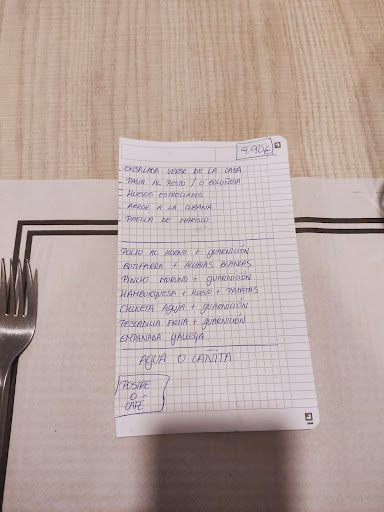 9.90€
ENSALADA VERDE DE LA CASA
PASTA AL PESTO / O BOLOÑESA
HUEVOS ESTRELLADOS
ARROZ A LA CUBANA
PAELLA DE MARISCO
POLLO AL HORNO + GUARNICIÓN
BOTIFARRA + ALUBIAS BLANCAS
PINCHO MORUNO + GUARNICIÓN
HAMBURGUESA + HUEVO + PATATAS
CHULETA AGUJA + GUARNICIÓN
PESCADILLA FRITA + GUARNICIÓN
EMPANADA GALLEGA
AGUA O CAÑITA
POSTRE
O
CAFÉ